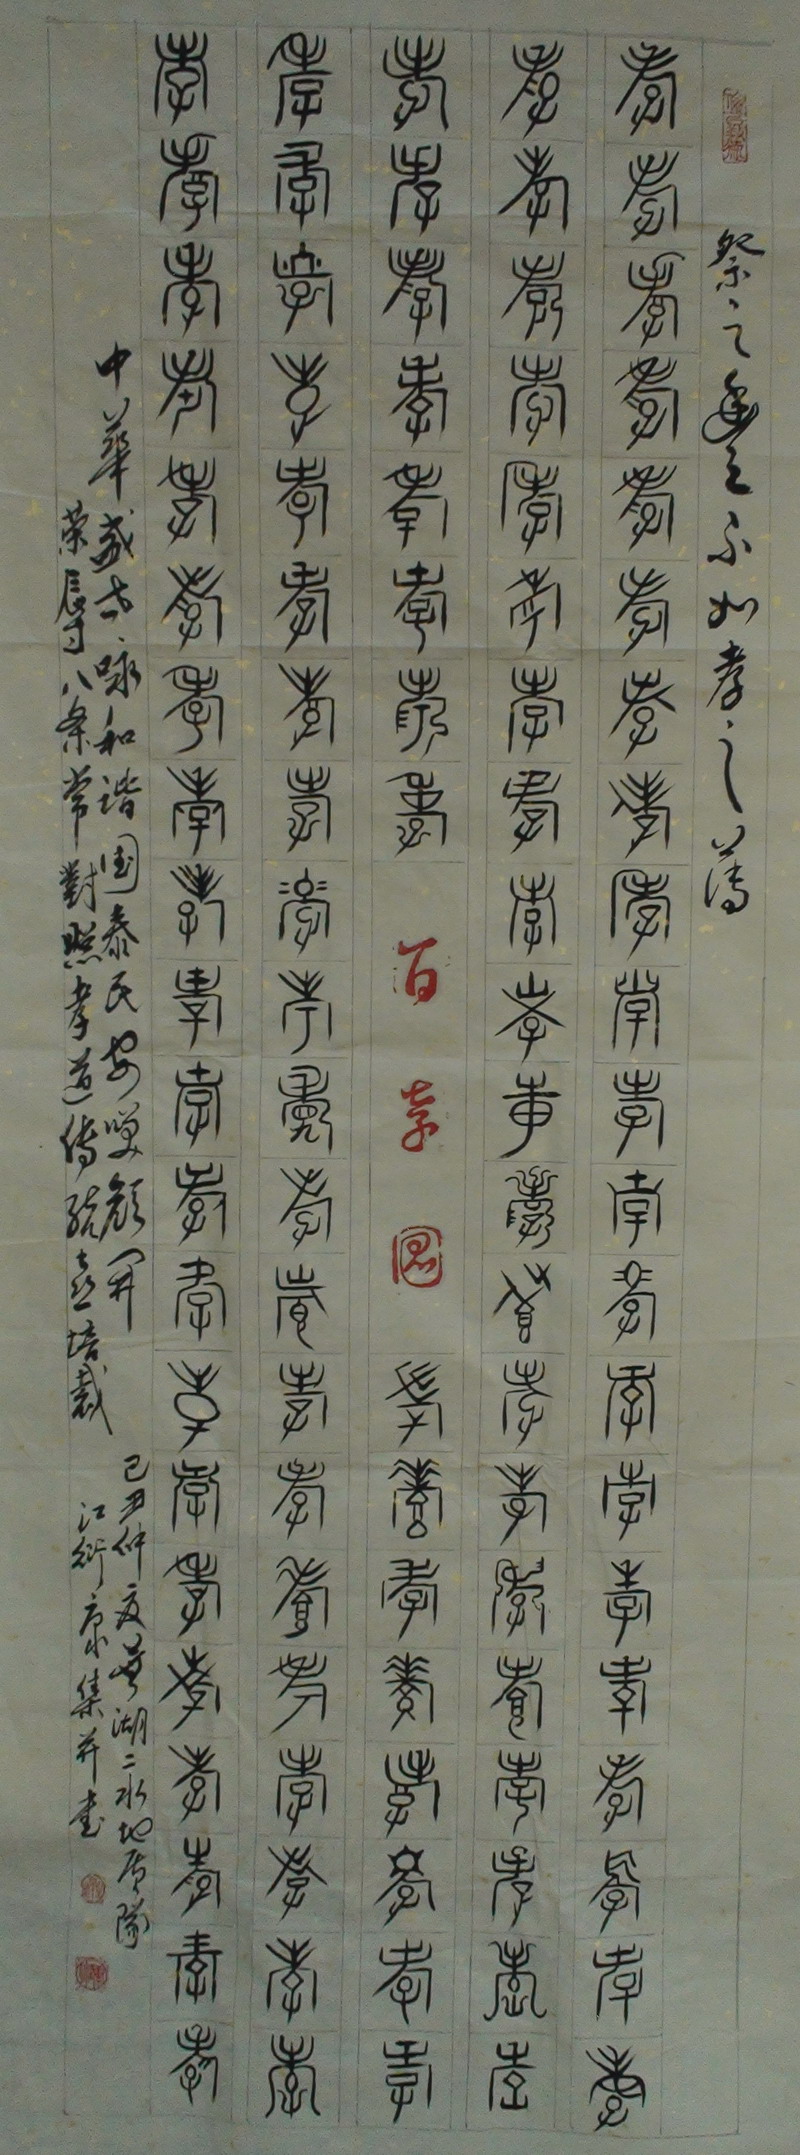 祭之 不如孝之薄
孝孝孝孝孝孝孝孝孝孝孝孝孝孝孝孝孝孝孝孝孝
孝孝孝孝孝孝孝孝孝孝孝孝孝孝孝孝孝孝孝孝孝
孝孝孝孝孝孝孝孝
百孝圖
孝孝孝孝孝孝孝孝
孝孝孝孝孝孝孝孝孝孝孝孝孝孝孝孝孝孝孝孝孝
孝孝孝孝孝孝孝孝孝孝孝孝孝孝孝孝孝孝孝孝孝
中華盛世咏和谐国泰民安笑顔開
榮辱八条常對照孝道傳統喜培栽
己丑仲夏蕪湖二水地质隊
江衍康集并書